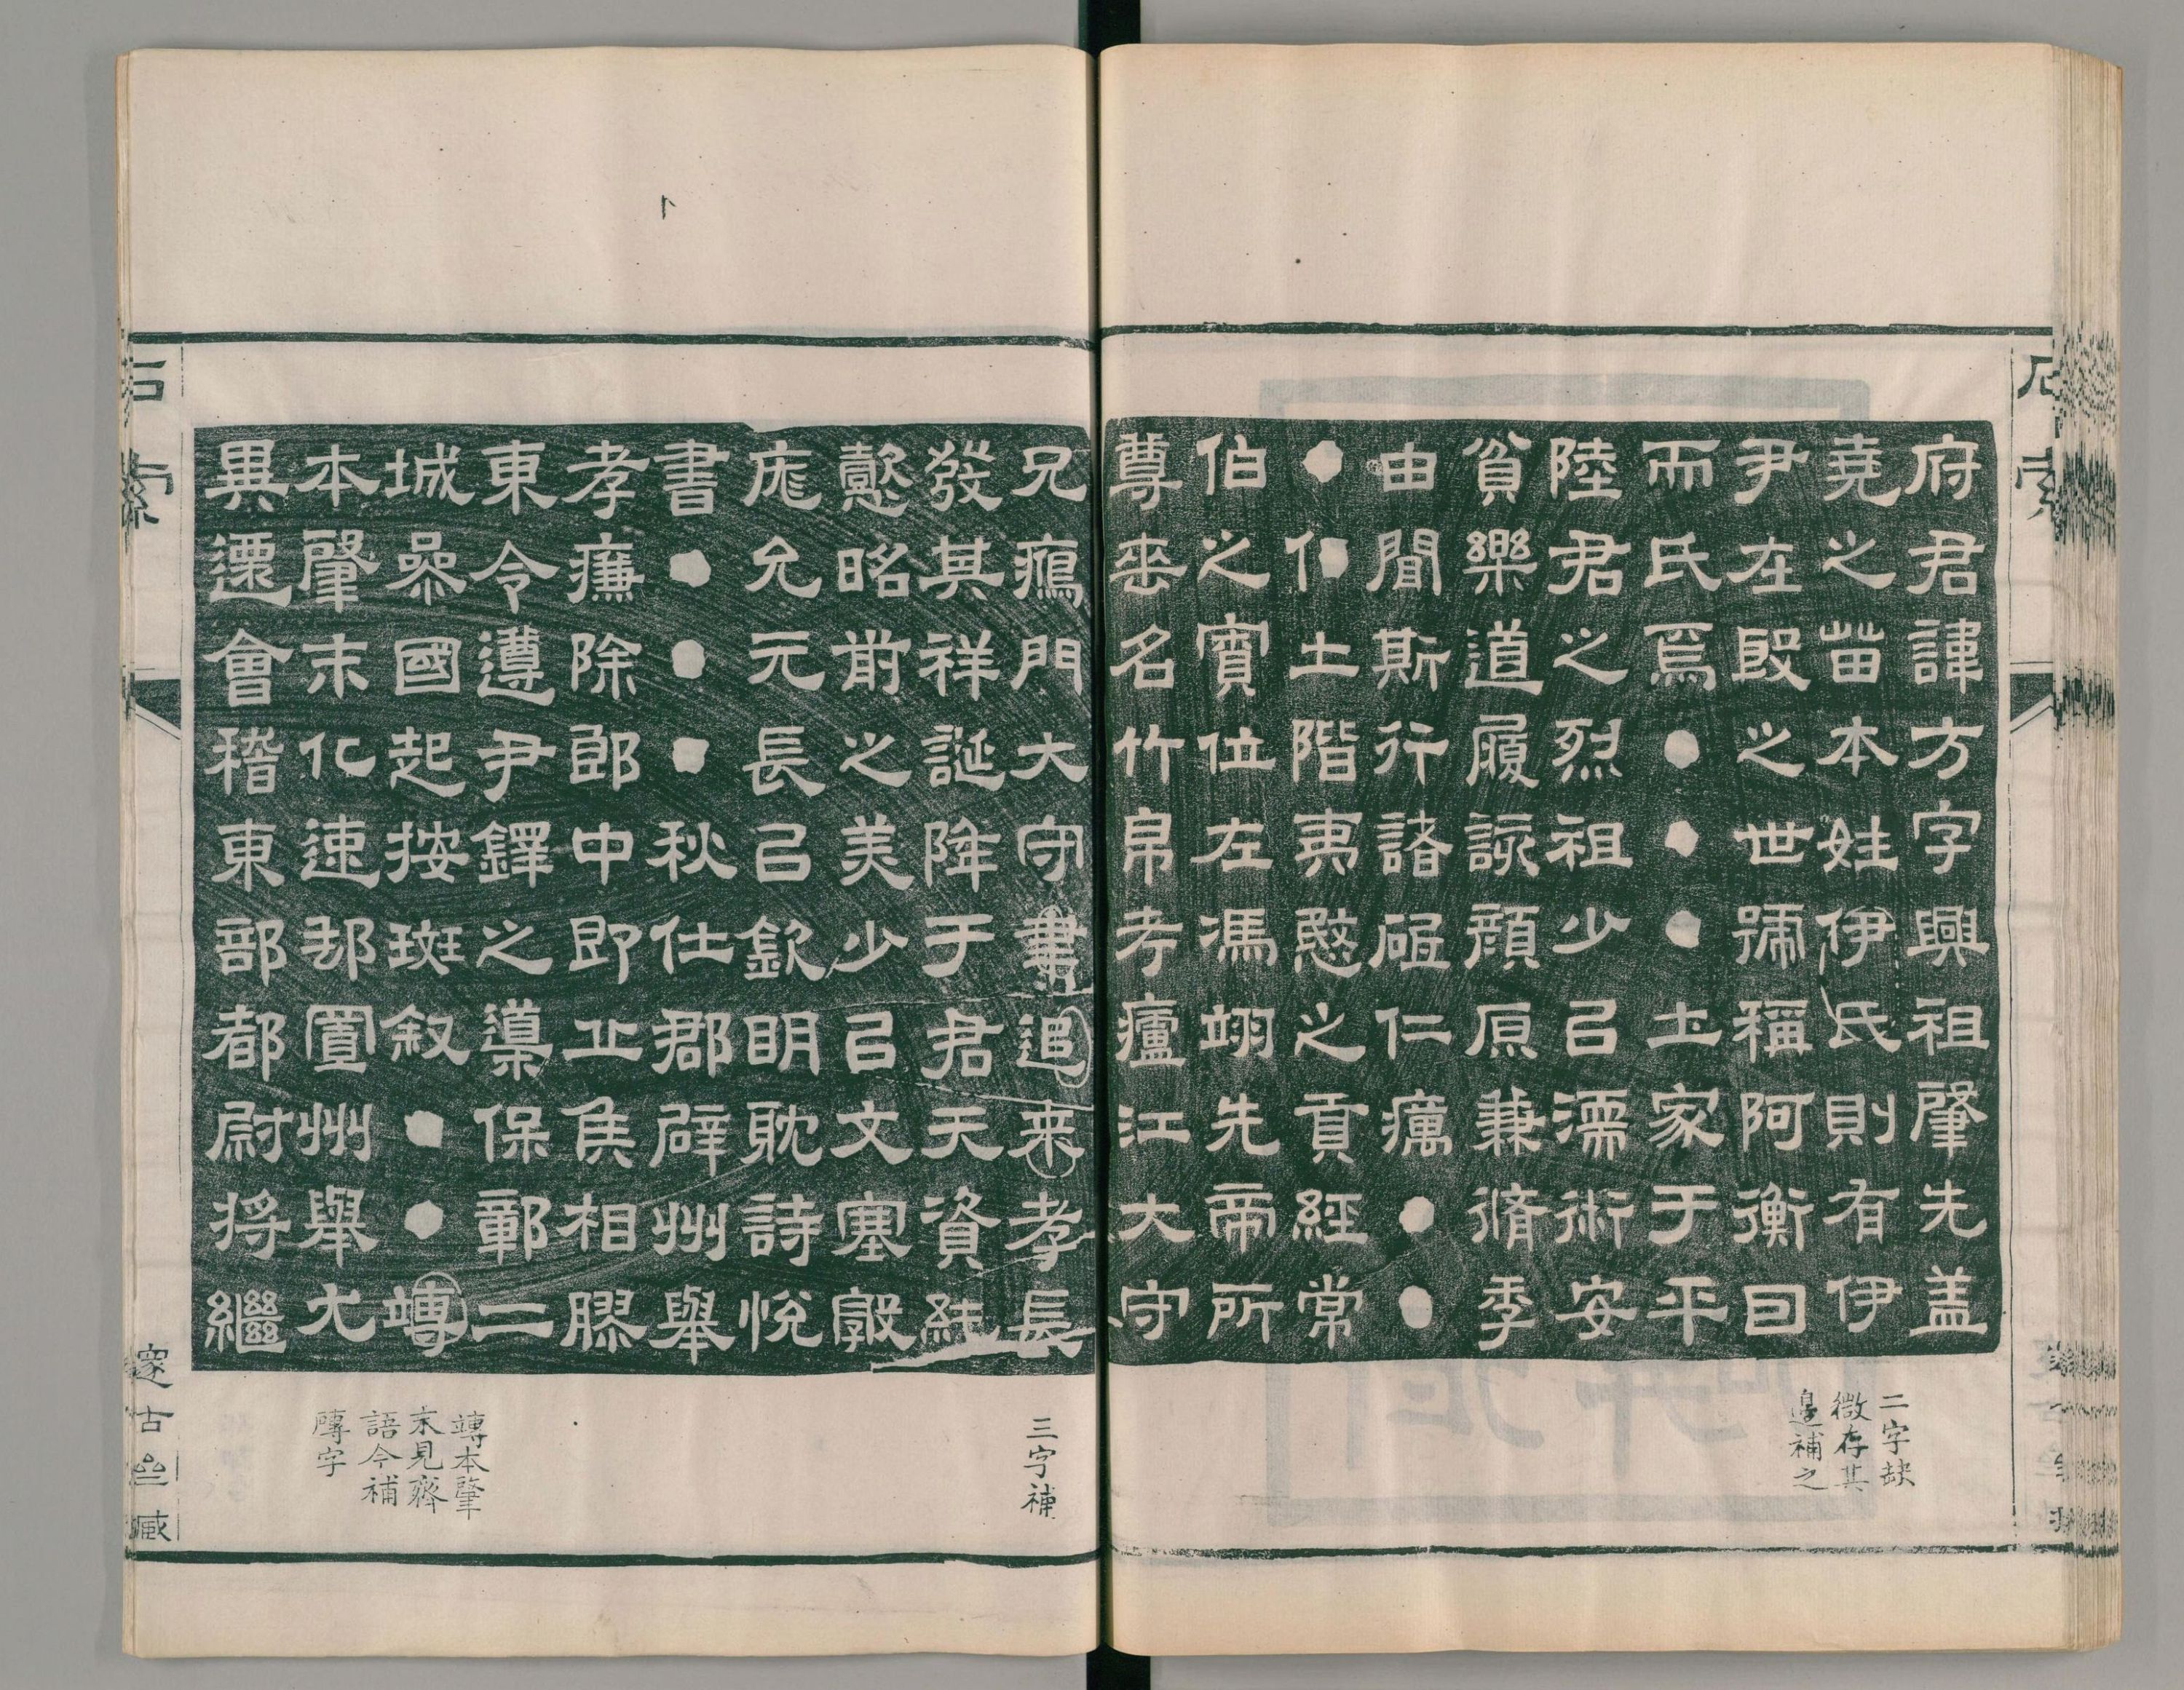 府君諱方字興祖肇先蓋
堯之苗本姓伊氏則有伊
尹在殷之世號稱阿衡曰
而氏焉●●●土家于平
陸君之烈祖少㠯濡術安
貧樂道履該顏原兼脩季
由聞斯行諸砠仁癘●●
●伯土階夷愍之貢經常
伯之賓位左馮翊先帝所
尊垂名竹帛考廬江大守
兄鴈門大守書追来孝長
發其祥誕降于君天資純
懿昭前之美少㠯文塞敦
庬允元長㠯欽明耽詩悅
書●●●秋仕郡辟州舉
孝廉除郎中即丘侯相膠
東令遵尹鐸之導保鄣二
城參國起按斑叙●●竱
本肇末化速郵置州舉尤
異遷會稽東部都尉将繼
二字缺
微存其
邊補之
三字補
竱本肇
末見齊
語今補
磚字
石索
邃古亝臧
石索